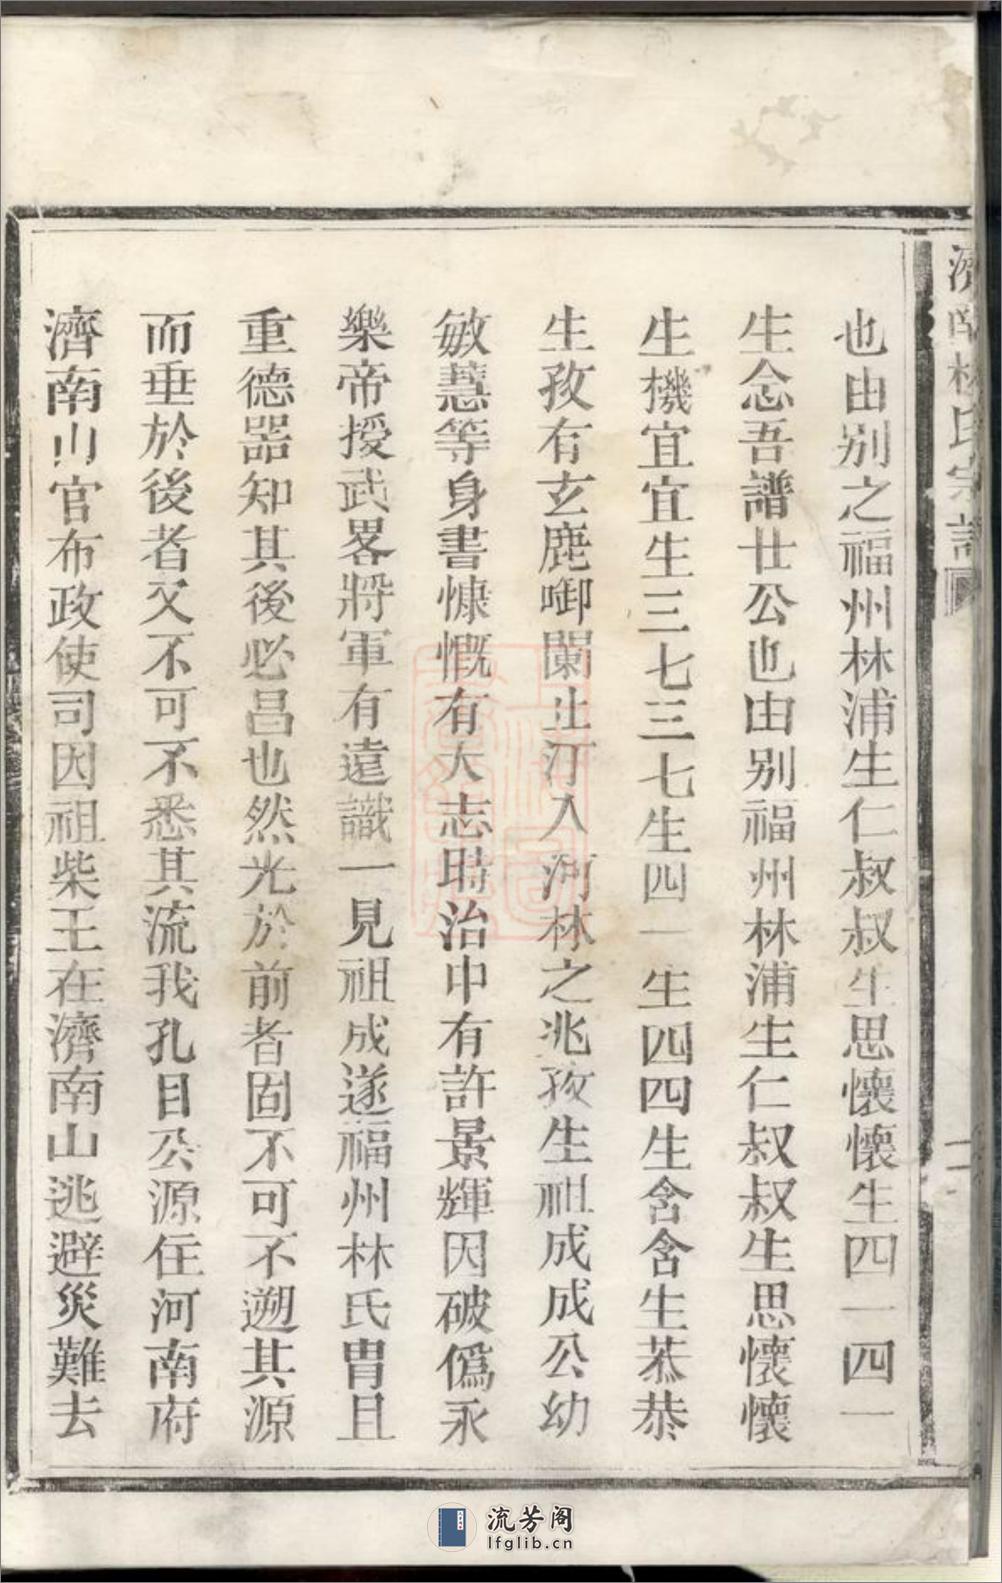 濟南林氏宗譜
也由别之福州林浦生仁叔叔生思懷懷生四一四一
生念吾譜廿公也由别福州林浦生仁叔叔生思懷懷
生機宜宜生三七三七生四一生四四生含含生恭恭
生孜有玄鹿啣闌止汀入河林之兆孜生祖成成公幼
敏慧等身書慷慨有大志時治中有許景輝因破僞永
樂帝授武畧將軍有遠識一見祖成遂福州林氏胄且
重德器知其後必昌也然光於前者固不可不遡其源
而垂於後者又不可不悉其流我孔目公源住河南府
濟南山官布政使司因祖柴王在濟南山逃避災難去
流芳阁
lfglib.cn